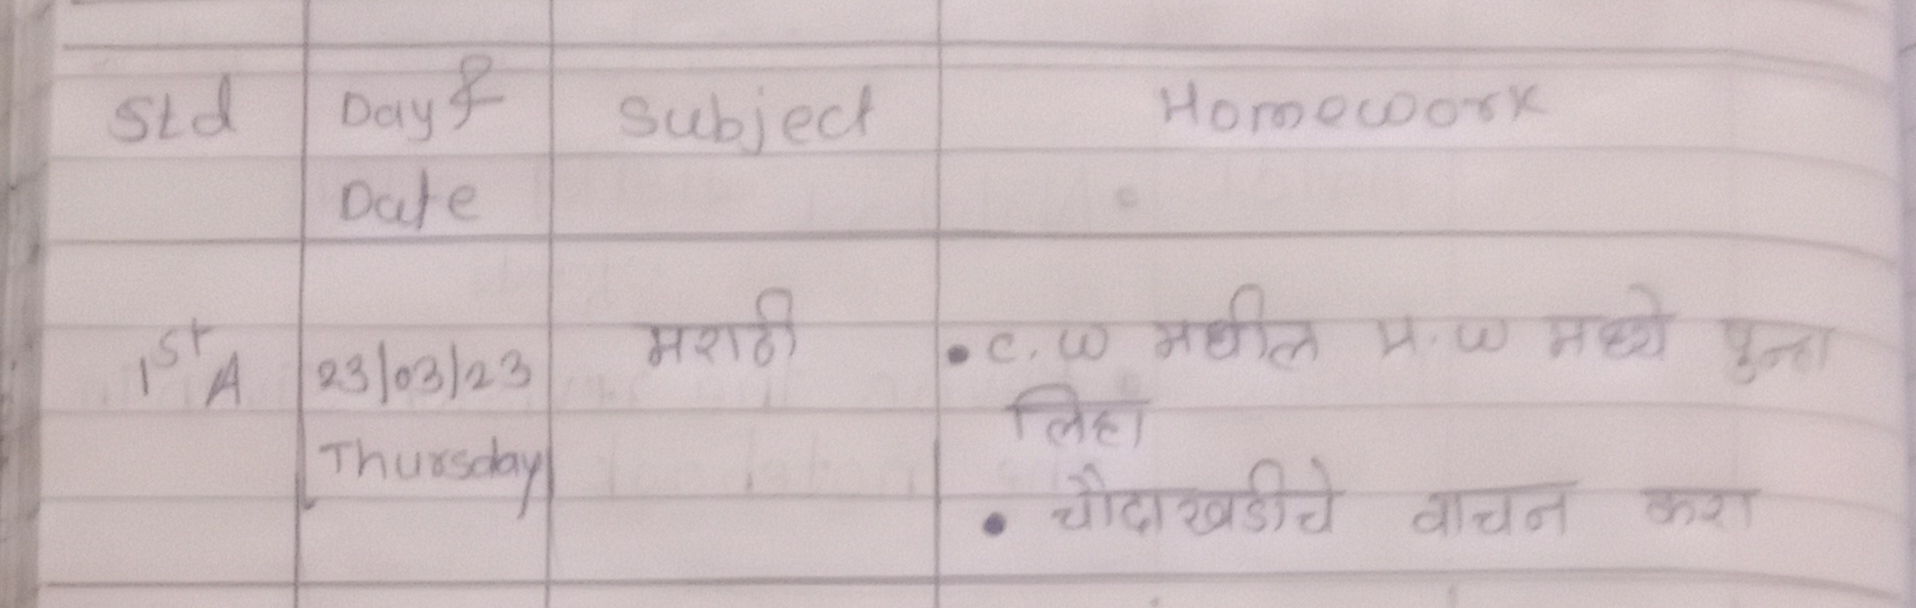 Std Day & Subject Homework
Date
1st A 23/03/23 मराठी • C.W मधील H.W मध्ये पुन्हा
लिहा
Thursday
• चौदाखडीचे वाचन करा